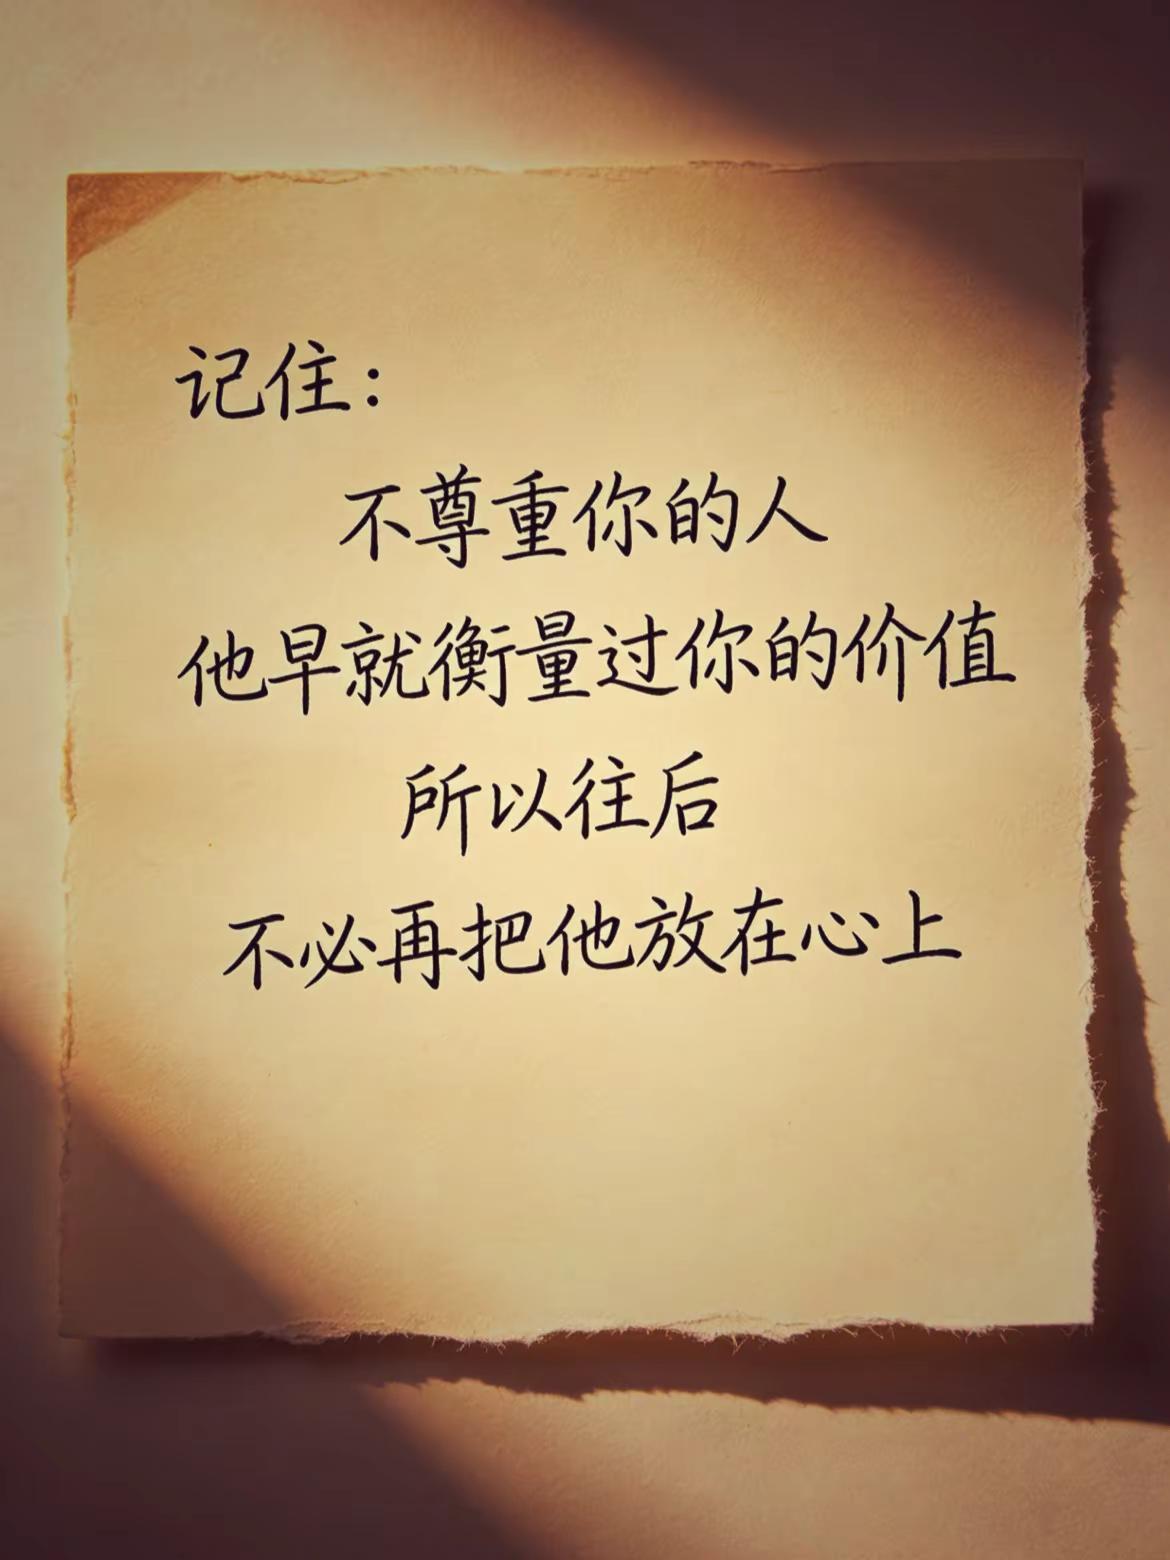 记住：
不尊重你的人
他早就衡量过你的价值
所以往后
不必再把他放在心上